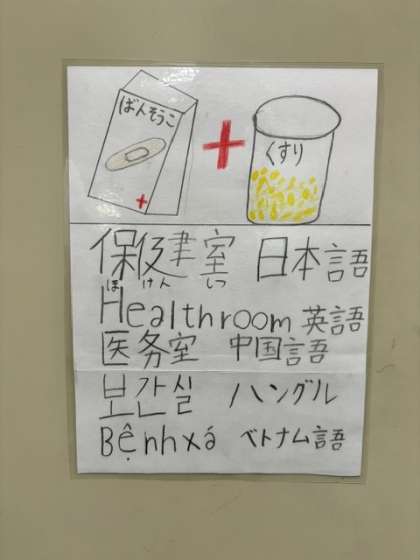 ばんそうこ
+
くすり
+
保健室 日本語
ほ けん しつ
Healthroom 英語
医务室 中国言語
보간실 ハングル
Bệnh xá ベトナム語